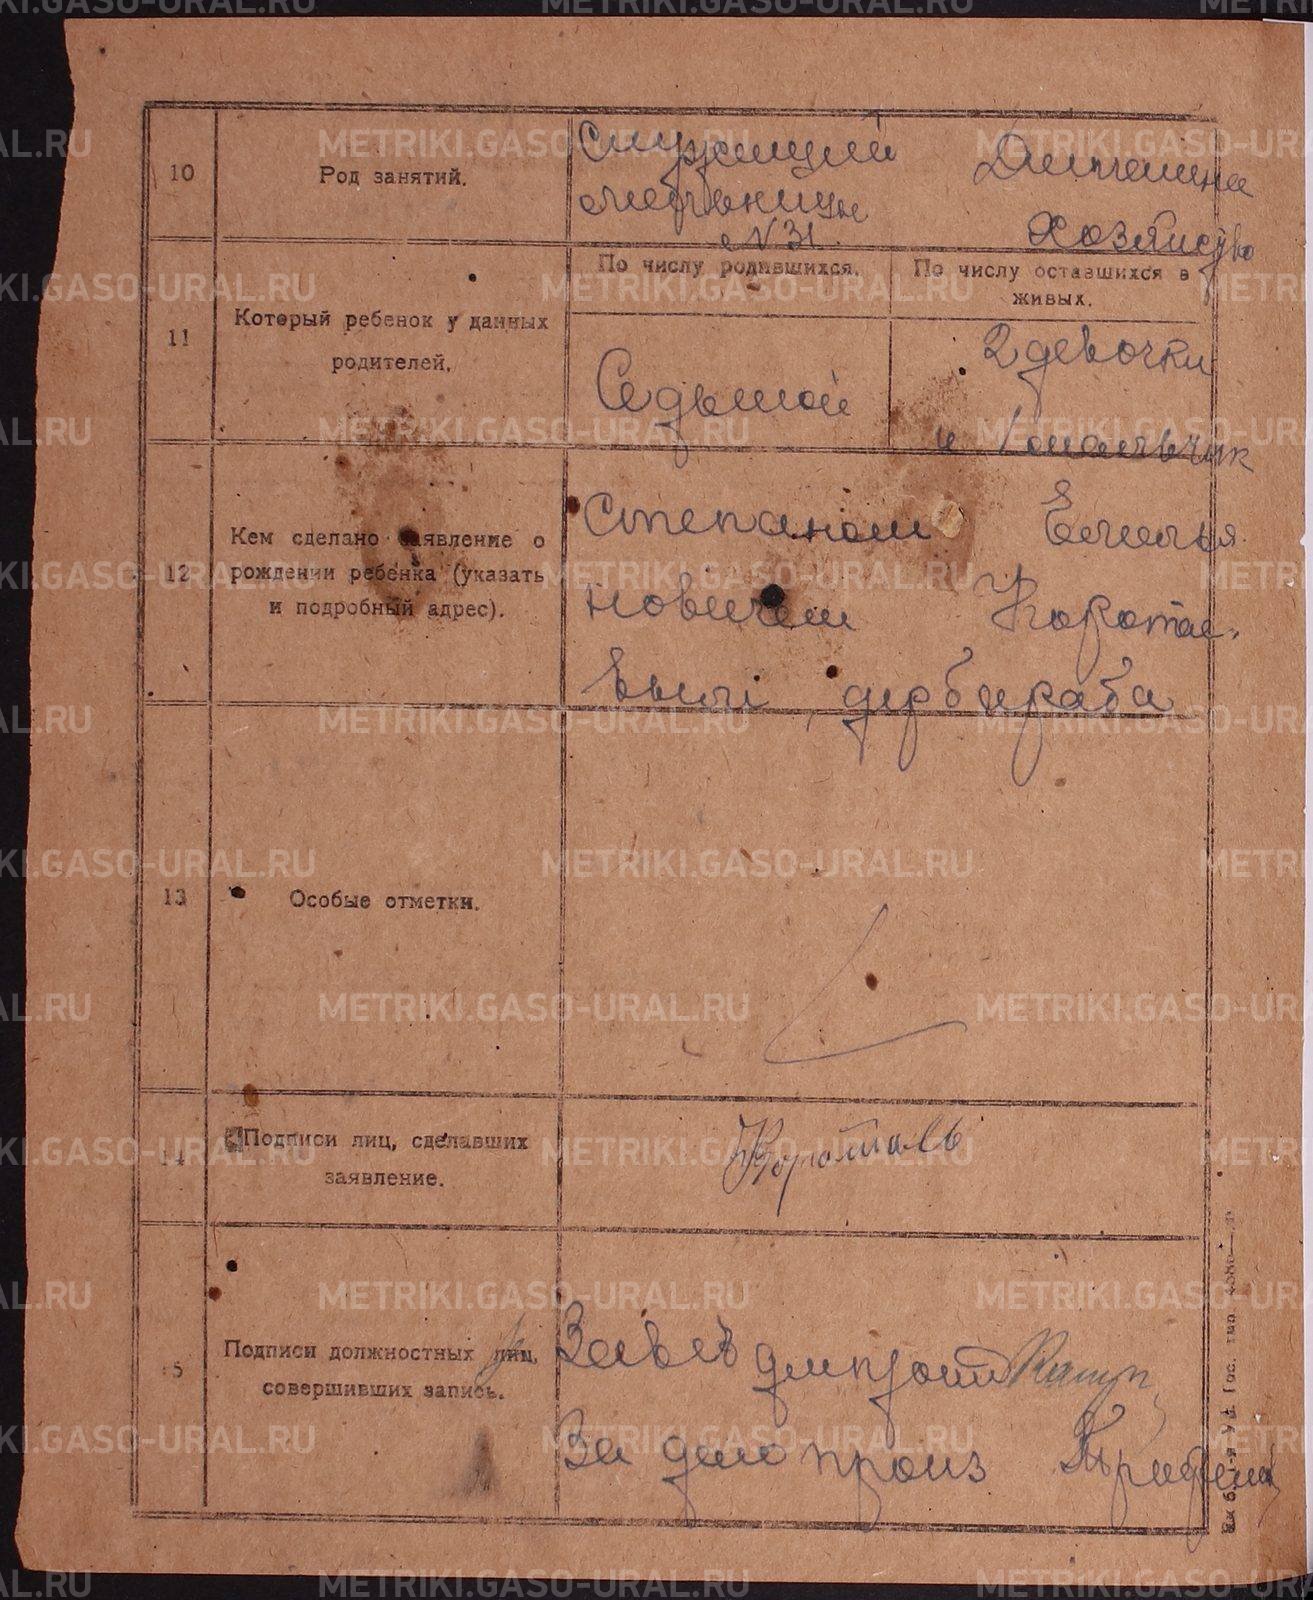 10
Род занятий.
Служащий
№ 31.
Домашнее
Хозяйство
11
Который ребенок у данных
родителей.
По числу родившихся.
По числу оставшихся в
живых.
Седьмой
2 девочки
и 1 мальчик
12
Кем сделано заявление о
рождении ребенка (указать
и подробный адрес).
Степаном
новичем Коротае-
вым,
13
Особые отметки.
14
Подписи лиц, сделавших
заявление.
Коротаев
15
Подписи должностных лиц,
совершивших запись.
Завед
За делопроиз
METRIKI.GASO-URAL.RU